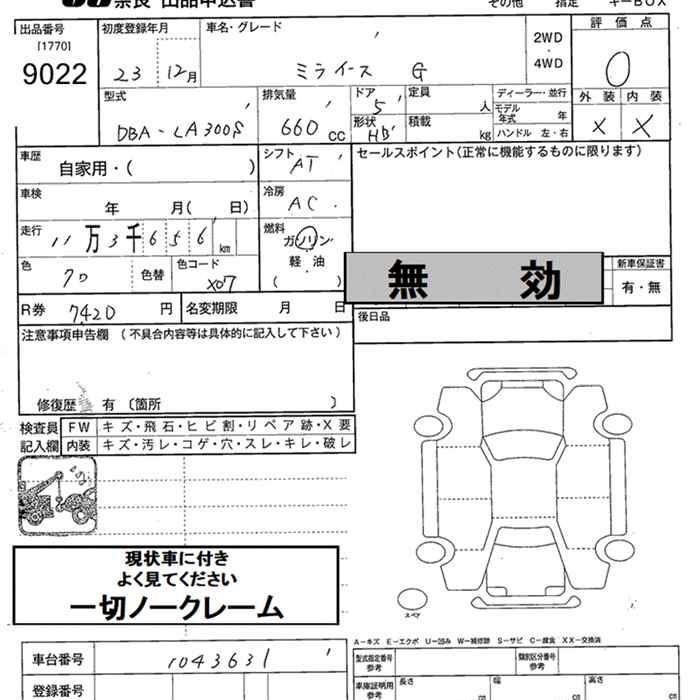 奈良 出品申込書
その他 指定 キーBOX
出品番号
[1770]
9022
初度登録年月
23 12月
車名・グレード
ミライース G
2WD
・
4WD
評価点
0
外装 内装
X X
型式
DBA-LA300S
排気量
660 cc
ドア
5
形状
HB
定員
人
積載
kg
ディーラー・並行
モデル年式 年
ハンドル 左・右
車歴
自家用・( )
シフト
AT
セールスポイント(正常に機能するものに限ります)
車検
年 月( 日)
冷房
AC
走行
11万3千656km
燃料
ガソリン
軽油
( )
色
クロ
色替
色コード
X07
無 効
新車保証書
有・無
R券 7420 円
名変期限 月 日
後日品
注意事項申告欄 (不具合内容等は具体的に記入して下さい)
修復歴 有 〔箇所 〕
検査員記入欄
FW キズ・飛石・ヒビ割・リペア跡・X要
内装 キズ・汚レ・コゲ・穴・スレ・キレ・破レ
現状車に付き
よく見てください
一切ノークレーム
スペア
A-キズ E-エクボ U-凹み W-補修跡 S-サビ C-腐食 XX-交換済
車台番号 1043631
登録番号
型式指定番号 参考
類別区分番号 参考
車庫証明用 参考
長さ cm
幅 cm
高さ cm